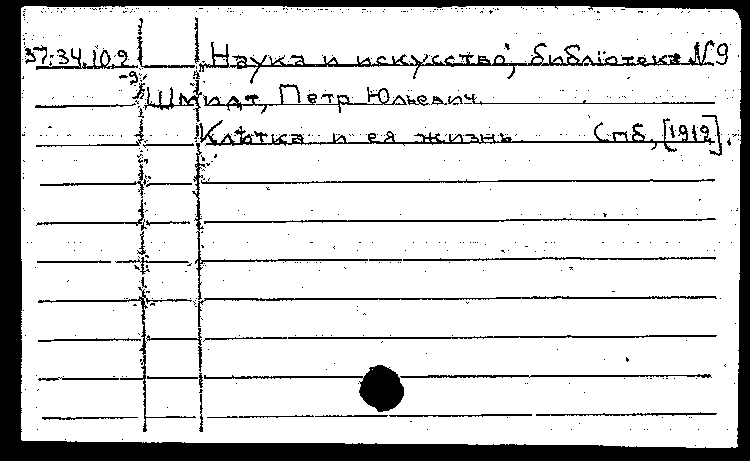 37:34.10.9 Наука и искусство, библіотека №9
-9
Шмидт, Петр Юльевич.
Клѣтка и ея жизнь. Спб, [1912].